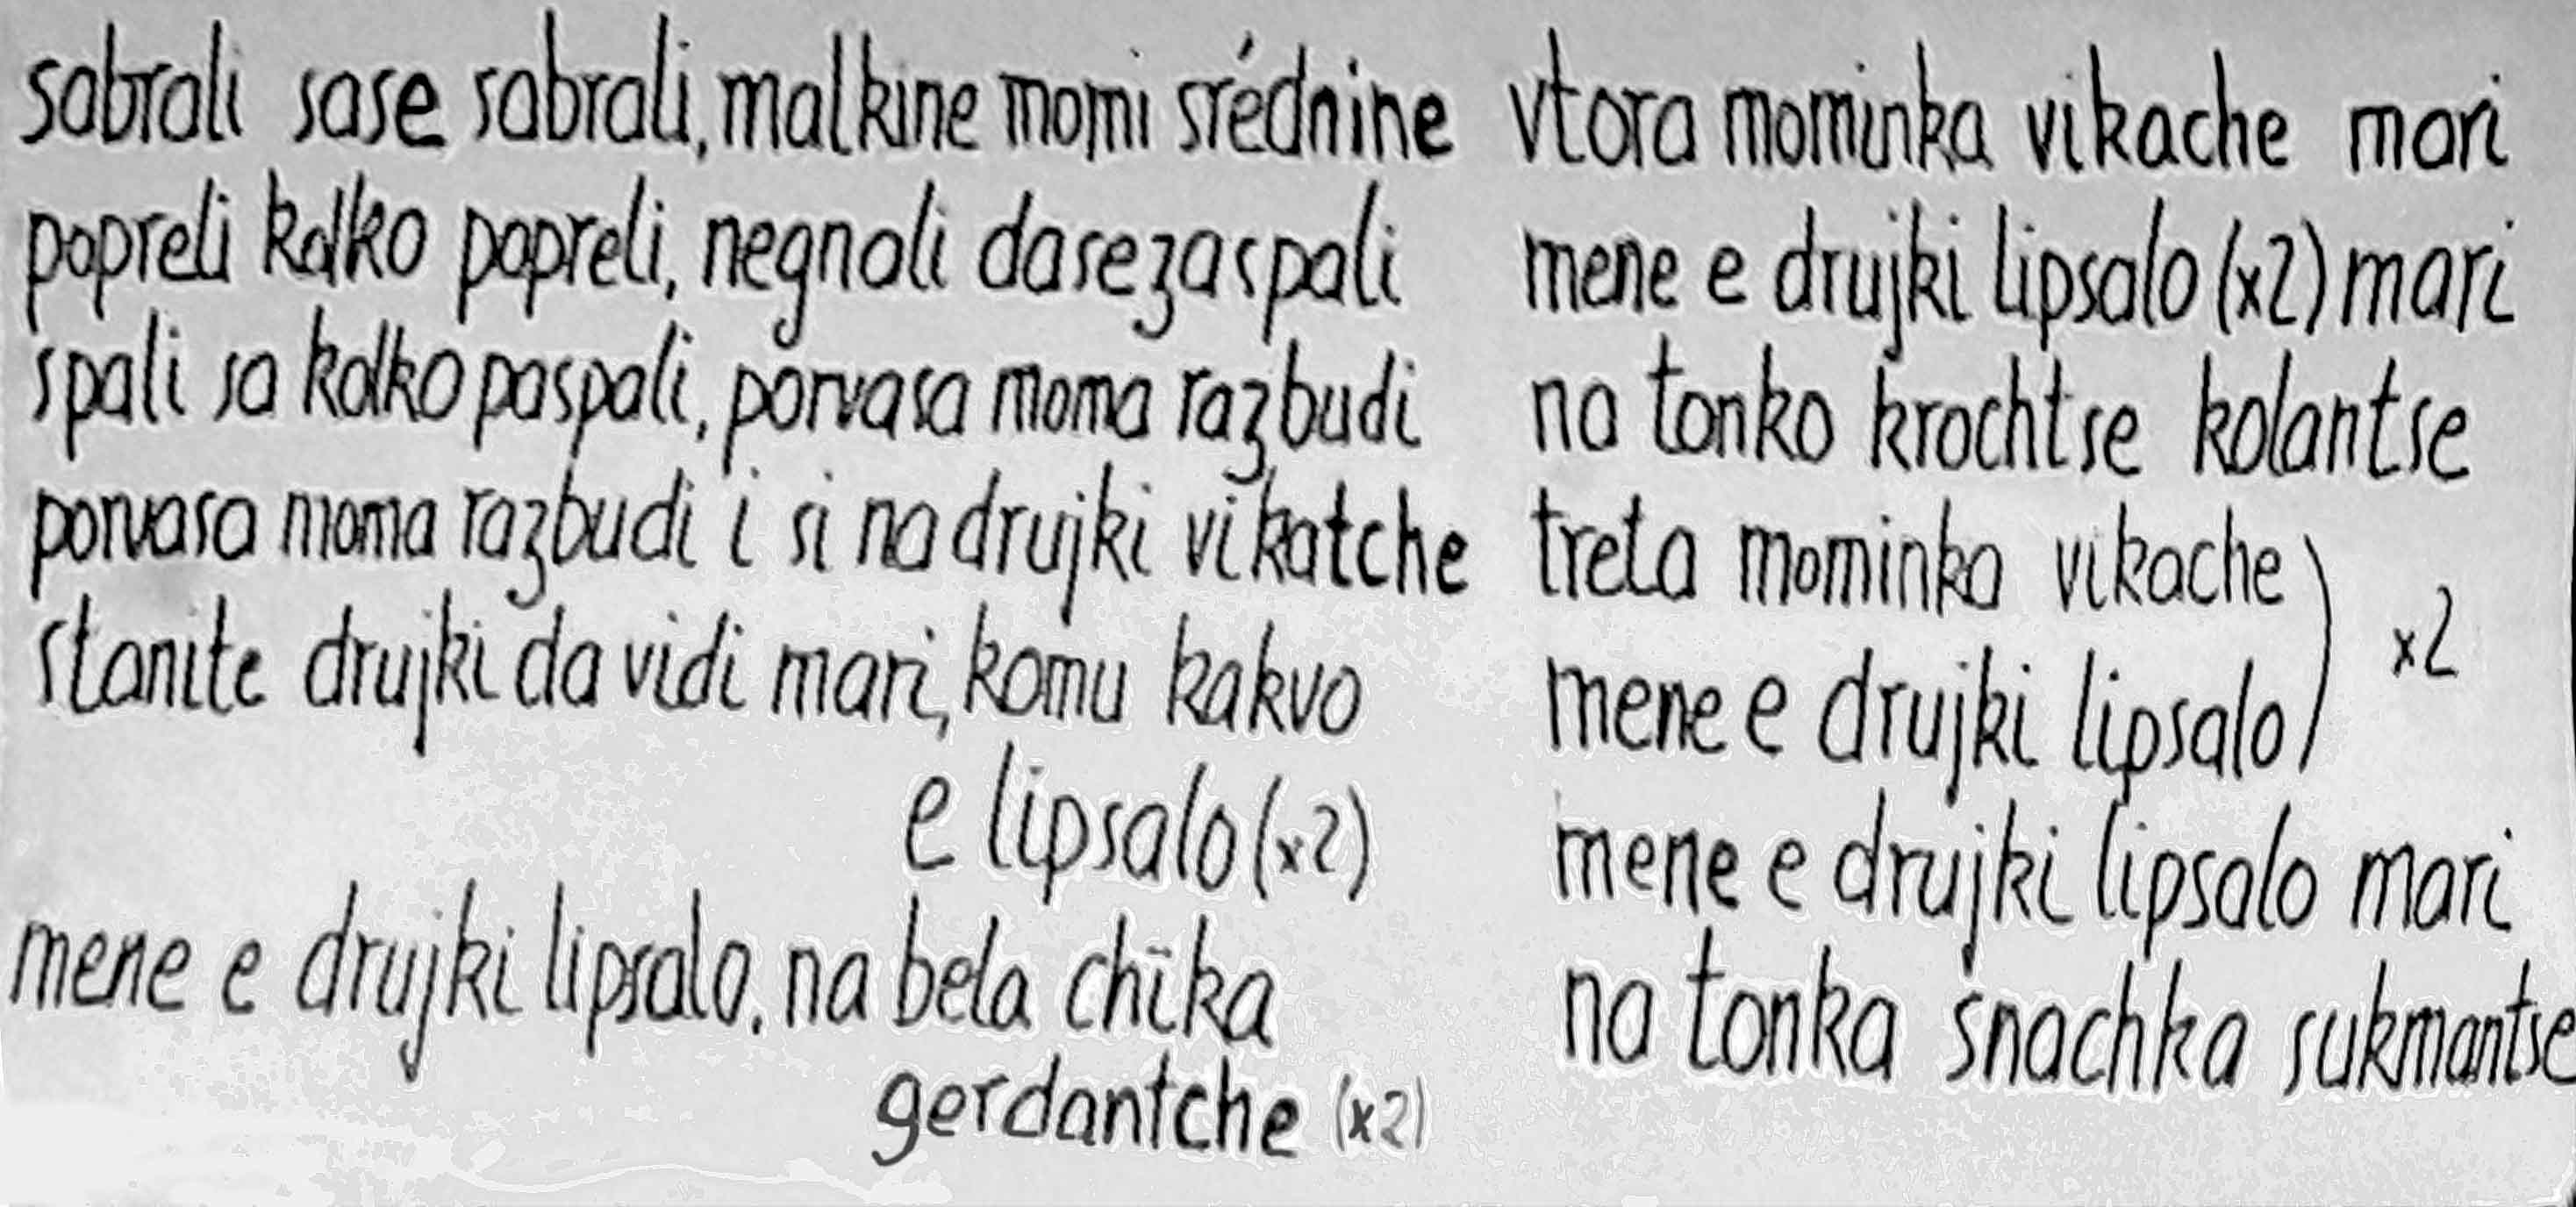 sabrali sase sabrali, malkine momi srédnine
popreli kolko popreli, negnali dasezaspali
spali sa kolko paspali, porvasa moma razbudi
porvasa moma razbudi i si na drujki vikatche
stanite drujki da vidi mari, komu kakvo
e lipsalo (x2)
mene e drujki lipsalo, na bela chika
gerdantche (x2)
vtora mominka vikache mari
mene e drujki lipsalo (x2) mari
na tonko krochtse kolantse
treta mominka vikache
mene e drujki lipsalo) x2
mene e drujki lipsalo mari
na tonka snachka sukmantse